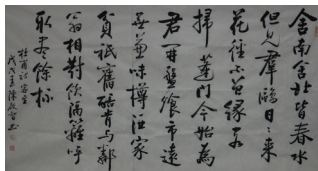 舍南舍北皆春水
但見羣鷗日日來
花徑不曾緣客
掃蓬門今始為
君開盤飧市遠
無兼味樽酒家
貧祗舊醅肯與鄰
翁相對飲隔籬呼
取盡餘杯
杜甫詩客至
戊戌